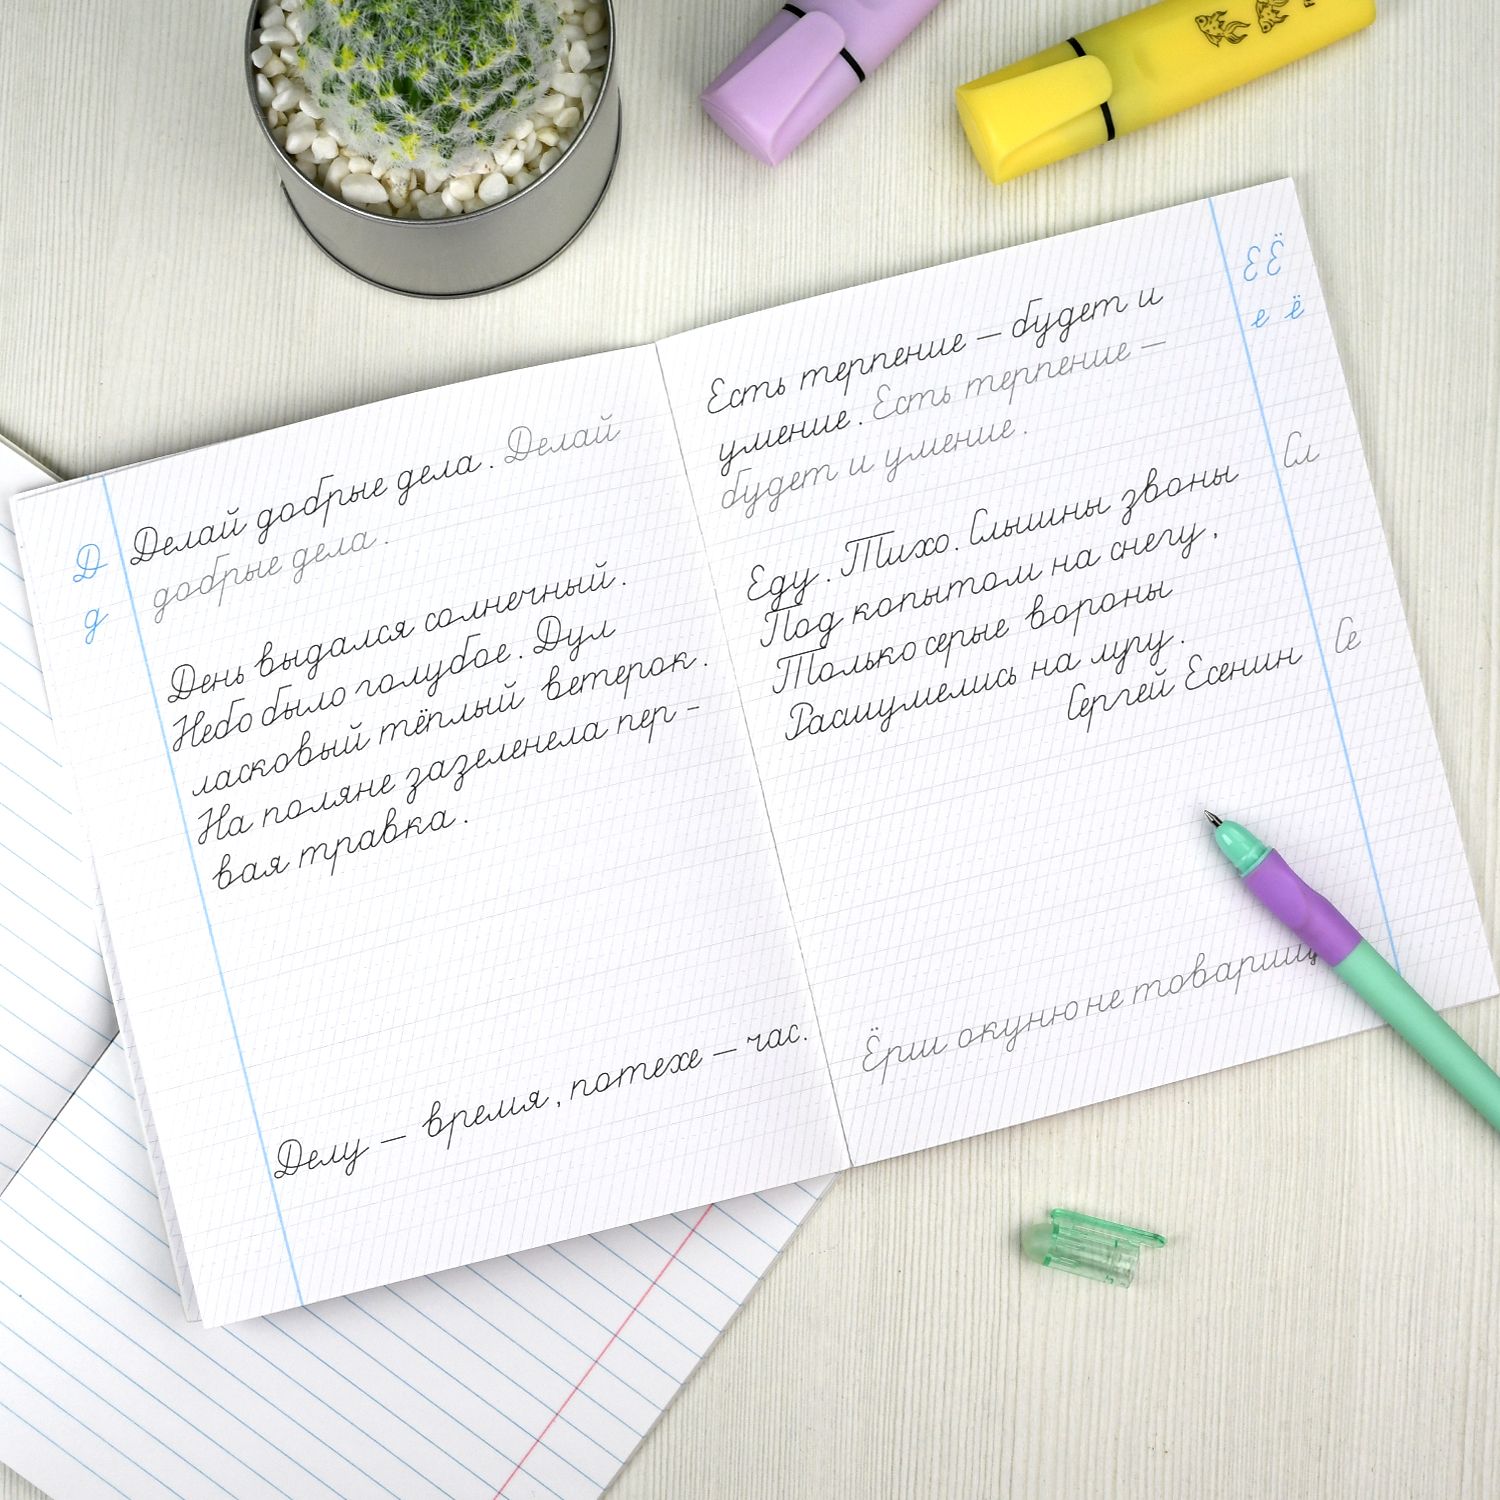 Д
д
Делай добрые дела. Делай
добрые дела.
День выдался солнечный.
Небо было голубое. Дул
ласковый тёплый ветерок.
На поляне зазеленела пер-
вая травка.
Делу — время, потехе — час.
Е Ё
е ё
Есть терпение — будет и
умение. Есть терпение —
будет и умение.
Еду. Тихо. Слышны звоны
Сл
Под копытом на снегу,
Только серые вороны
Расшумелись на лугу.
Сергей Есенин
Се
Ёрш окуню не